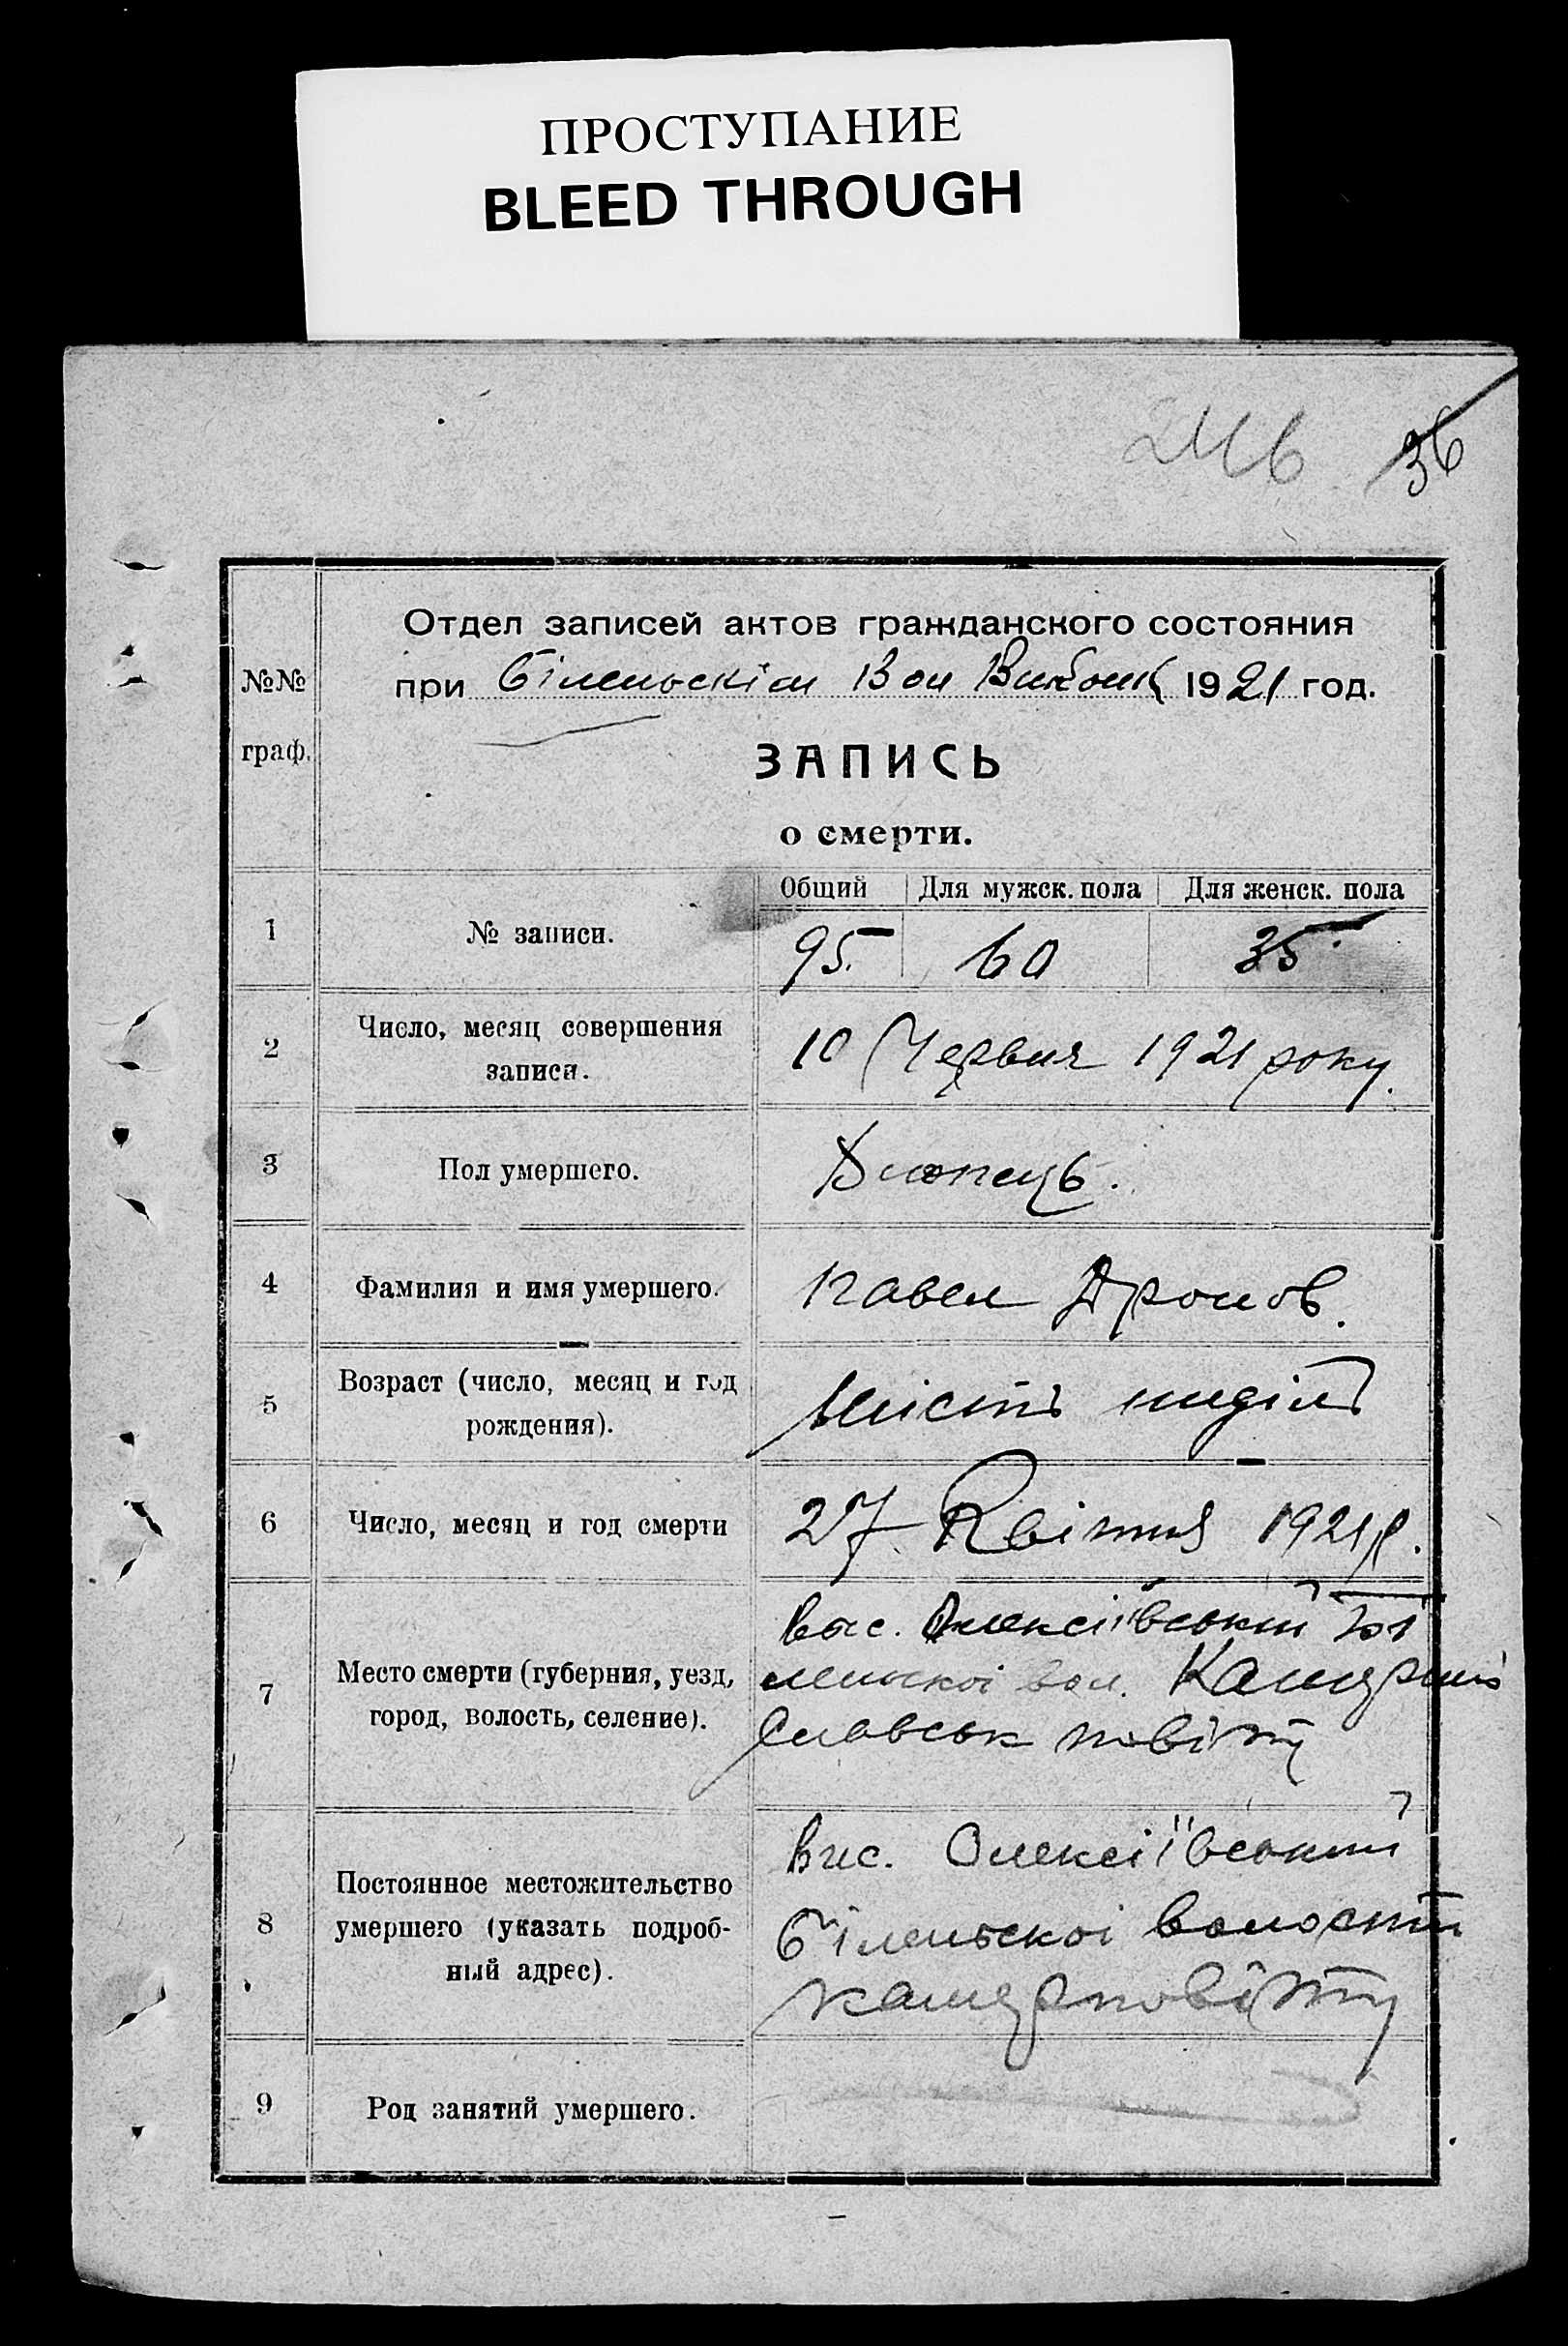 ПРОСТУПАНИЕ
BLEED THROUGH
36
Отдел записей актов гражданского состояния
при Біленьскім Вол Виконк 1921 год.
№№
граф.
ЗАПИСЬ
о смерти.
Общий Для мужск. пола Для женск. пола
1 № записи. 95. 60 35
2 Число, месяц совершения
записи. 10 Червня 1921 року.
3 Пол умершего. Хлопець.
4 Фамилия и имя умершего. Павел Дронов.
5 Возраст (число, месяц и год
рождения). Шість неділь
6 Число, месяц и год смерти 27 Квітня 1921 р.
7 Место смерти (губерния, уезд,
город, волость, селение).
вис. Олексіївський Бі
леньскоі вол. Катерино
Славськ повіту
8 Постоянное местожительство
умершего (указать подроб-
ный адрес).
вис. Олексіївський
Біленьскоі волости
катер повіту
9 Род занятий умершего.